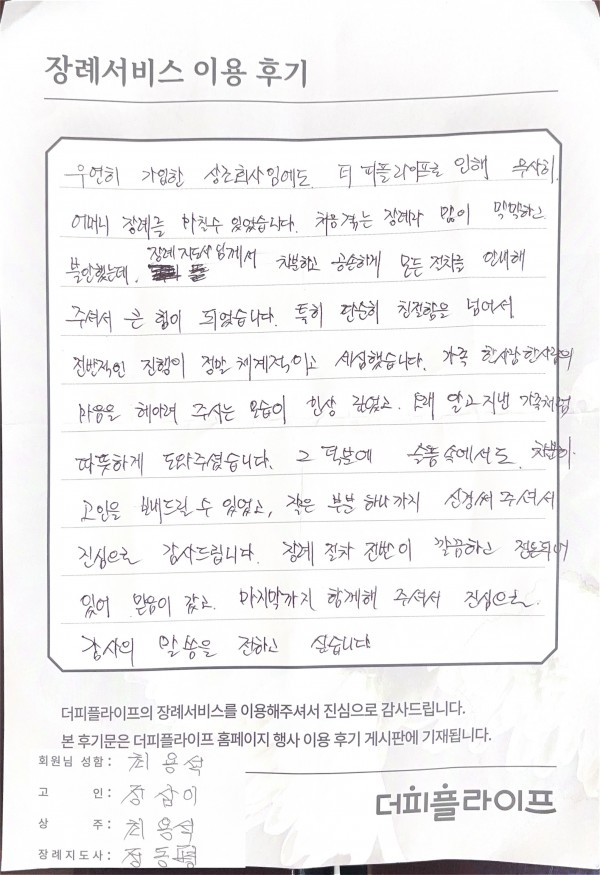 장례서비스 이용 후기
우연히 가입한 상조회사임에도 더 피플라이프로 인해 무사히
어머니 장례를 마칠수 있었습니다. 처음 겪는 장례라 맘이 막막하고
불안했는데, 장례지도사님께서 차분하고 공손하게 모든 절차를 안내해
주셔서 큰 힘이 되었습니다. 특히 단순히 친절함을 넘어서
전반적인 진행이 정말 체계적이고 세심했습니다. 가족 한사람한사람의
마음을 헤아려 주시는 모습이 인상 깊었고. 오래 알고지낸 가족처럼
따뜻하게 도와주셨습니다. 그 덕분에 슬픔속에서도 차분히
고인을 보내드릴 수 있었고, 작은 부분 하나까지 신경써 주셔서
진심으로 감사드립니다. 장례 절차 전반이 깔끔하고 정돈되어
있어 믿음이 갔고. 마지막까지 함께해 주셔서 진심으로.
감사의 말씀을 전하고 싶습니다
더피플라이프의 장례서비스를 이용해주셔서 진심으로 감사드립니다.
본 후기문은 더피플라이프 홈페이지 행사 이용 후기 게시판에 기재됩니다.
회원님 성함: 최용석
고 인: 장삼이
상 주: 최용석
장례지도사: 정동평
더피플라이프